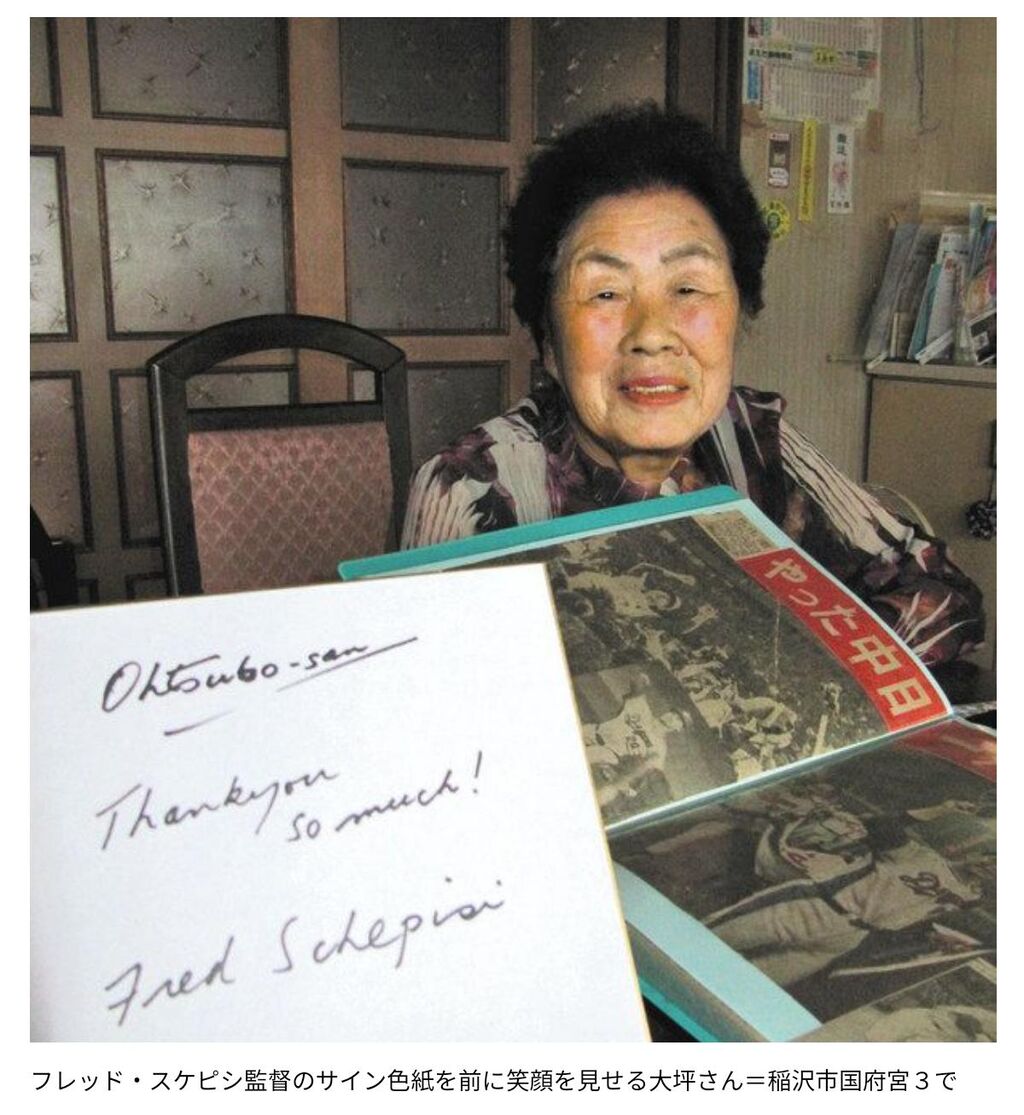 やった中日
Ohtsubo-san
Thankyou
so much!
Fred Schepisi
フレッド・スケピシ監督のサイン色紙を前に笑顔を見せる大坪さん＝稲沢市国府宮３で